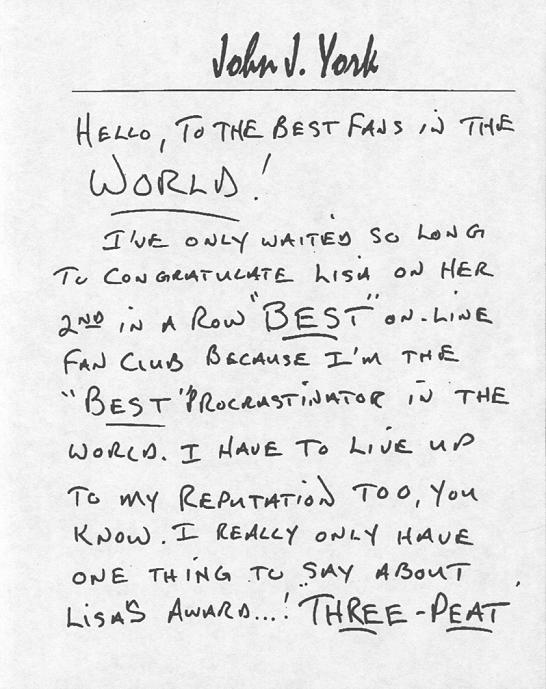 John J. York
HELLO, TO THE BEST FANS IN THE
WORLD!
I'VE ONLY WAITED SO LONG
TO CONGRATULATE LISA ON HER
2ND IN A ROW "BEST" ON-LINE
FAN CLUB BECAUSE I'M THE
"BEST" PROCRASTINATOR IN THE
WORLD. I HAVE TO LIVE UP
TO MY REPUTATION TOO, YOU
KNOW. I REALLY ONLY HAVE
ONE THING TO SAY ABOUT
LISA'S AWARD...! "THREE-PEAT'